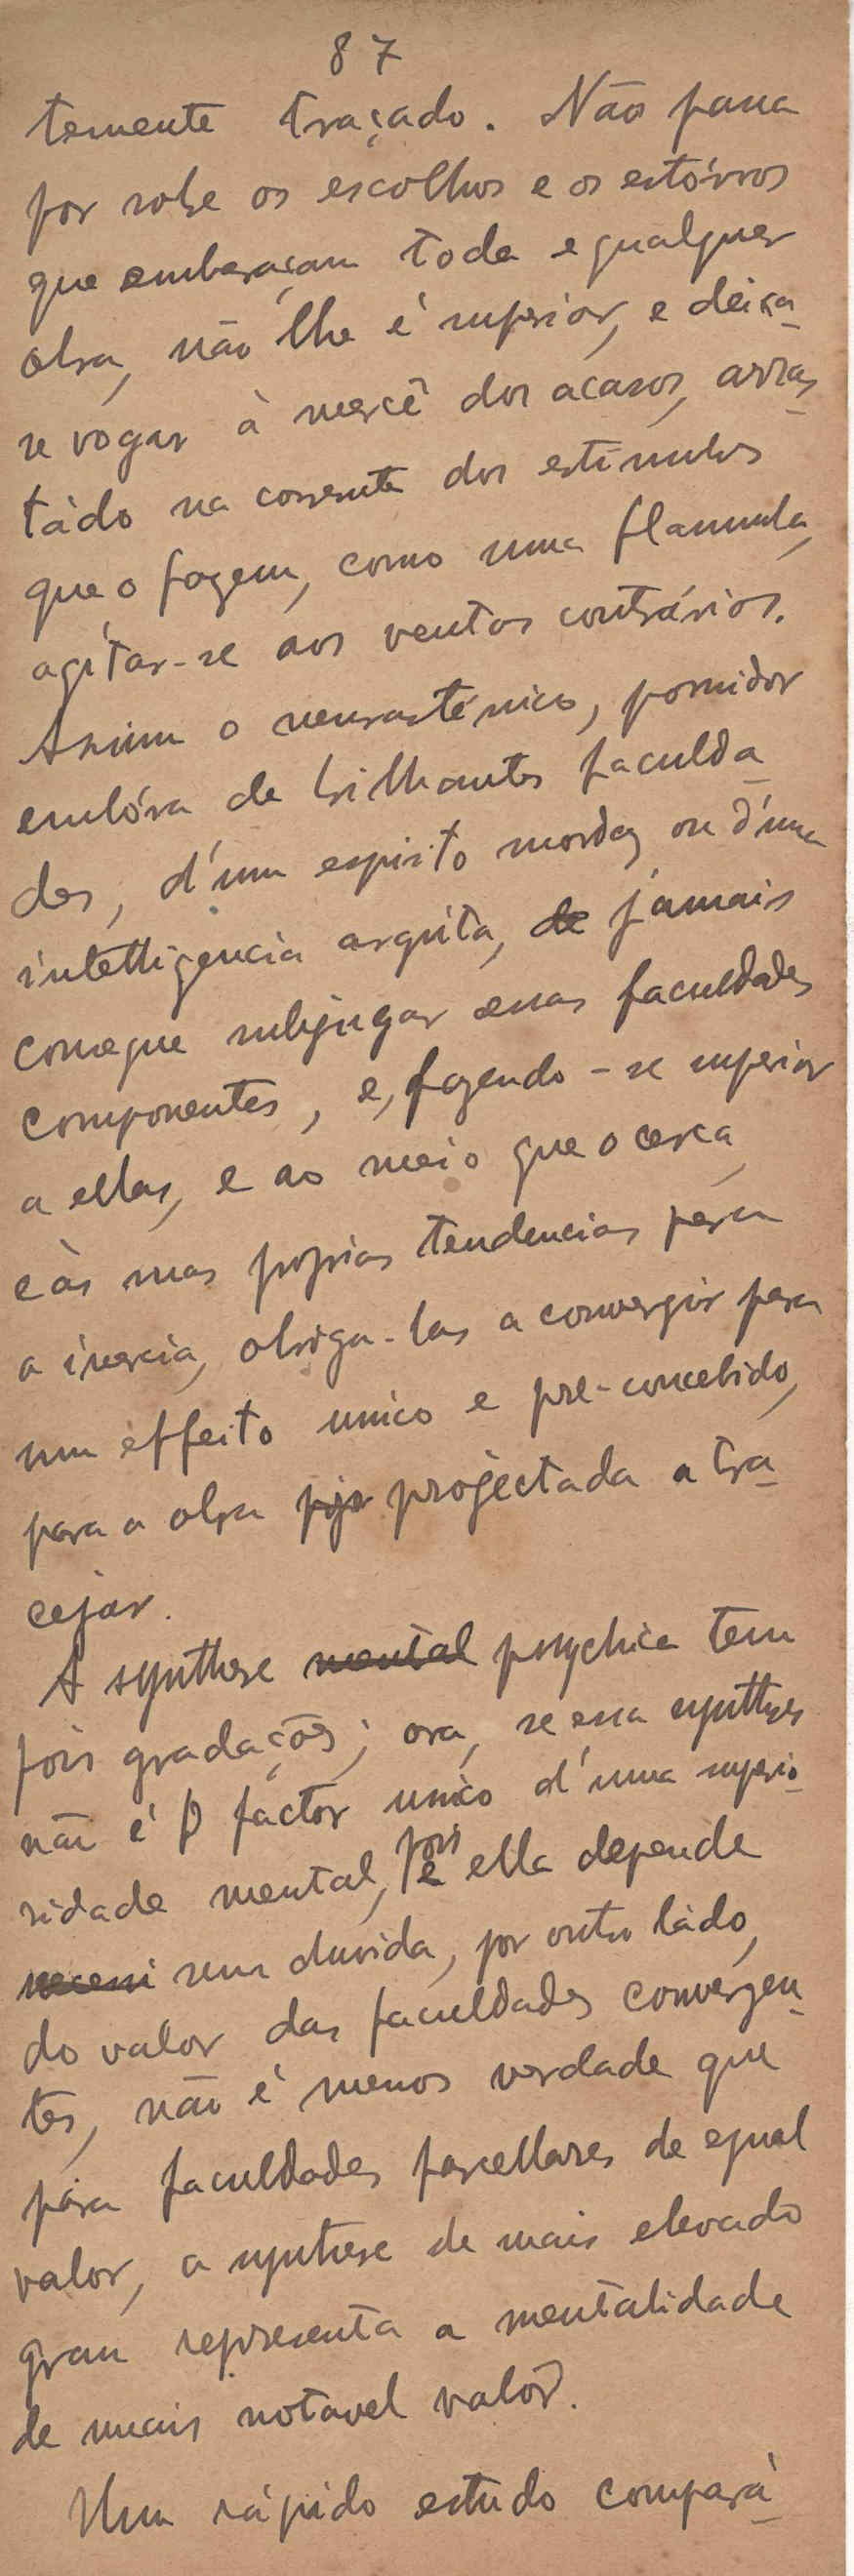 87
temente traçado. Não passa
por sobre os escolhos e os estôrvos
que embaraçam toda e qualquer
obra, não lhe é superior, e deixa-
se vogar à mercê dos acasos, arras-
tado na corrente dos estímulos
que o fazem, como uma flammula,
agitar-se aos ventos contrários.
Assim o neurasténico, possuidor
embóra de brilhantes faculda-
des, d'um espirito mordaz ou d'uma
intelligencia arguta, de jamais
consegue subjugar essas faculdades
componentes, e, fazendo-se superior
a ellas, e ao meio que o cerca,
e às suas proprias tendencias para
a inercia, obriga-las a convergir para
um effeito unico e pre-concebido,
para a obra projectada a tra-
cejar.
A synthese mental psychica tem
pois gradações; ora, se essa synthese
não é o factor unico d'uma superio-
ridade mental, pois e ella depende
necessi sem duvida, por outro lado,
do valor das faculdades convergen-
tes, não é menos verdade que
para faculdades parcellares de egual
valor, a synthese de mais elevado
grau representa a mentalidade
de mais notavel valor.
Um rápido estudo compara-